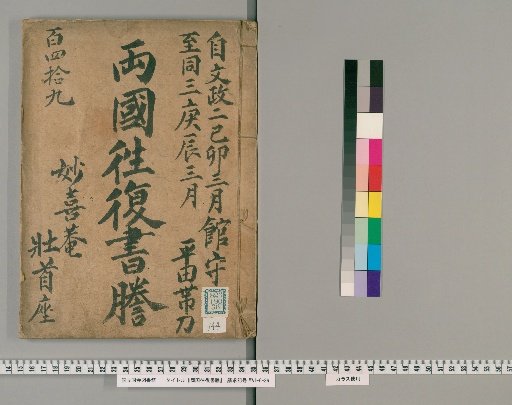 自文政二己卯三月
至同三庚辰三月
館守
平田帯刀
両國往復書謄
百四拾九
妙喜菴
壯首座
144